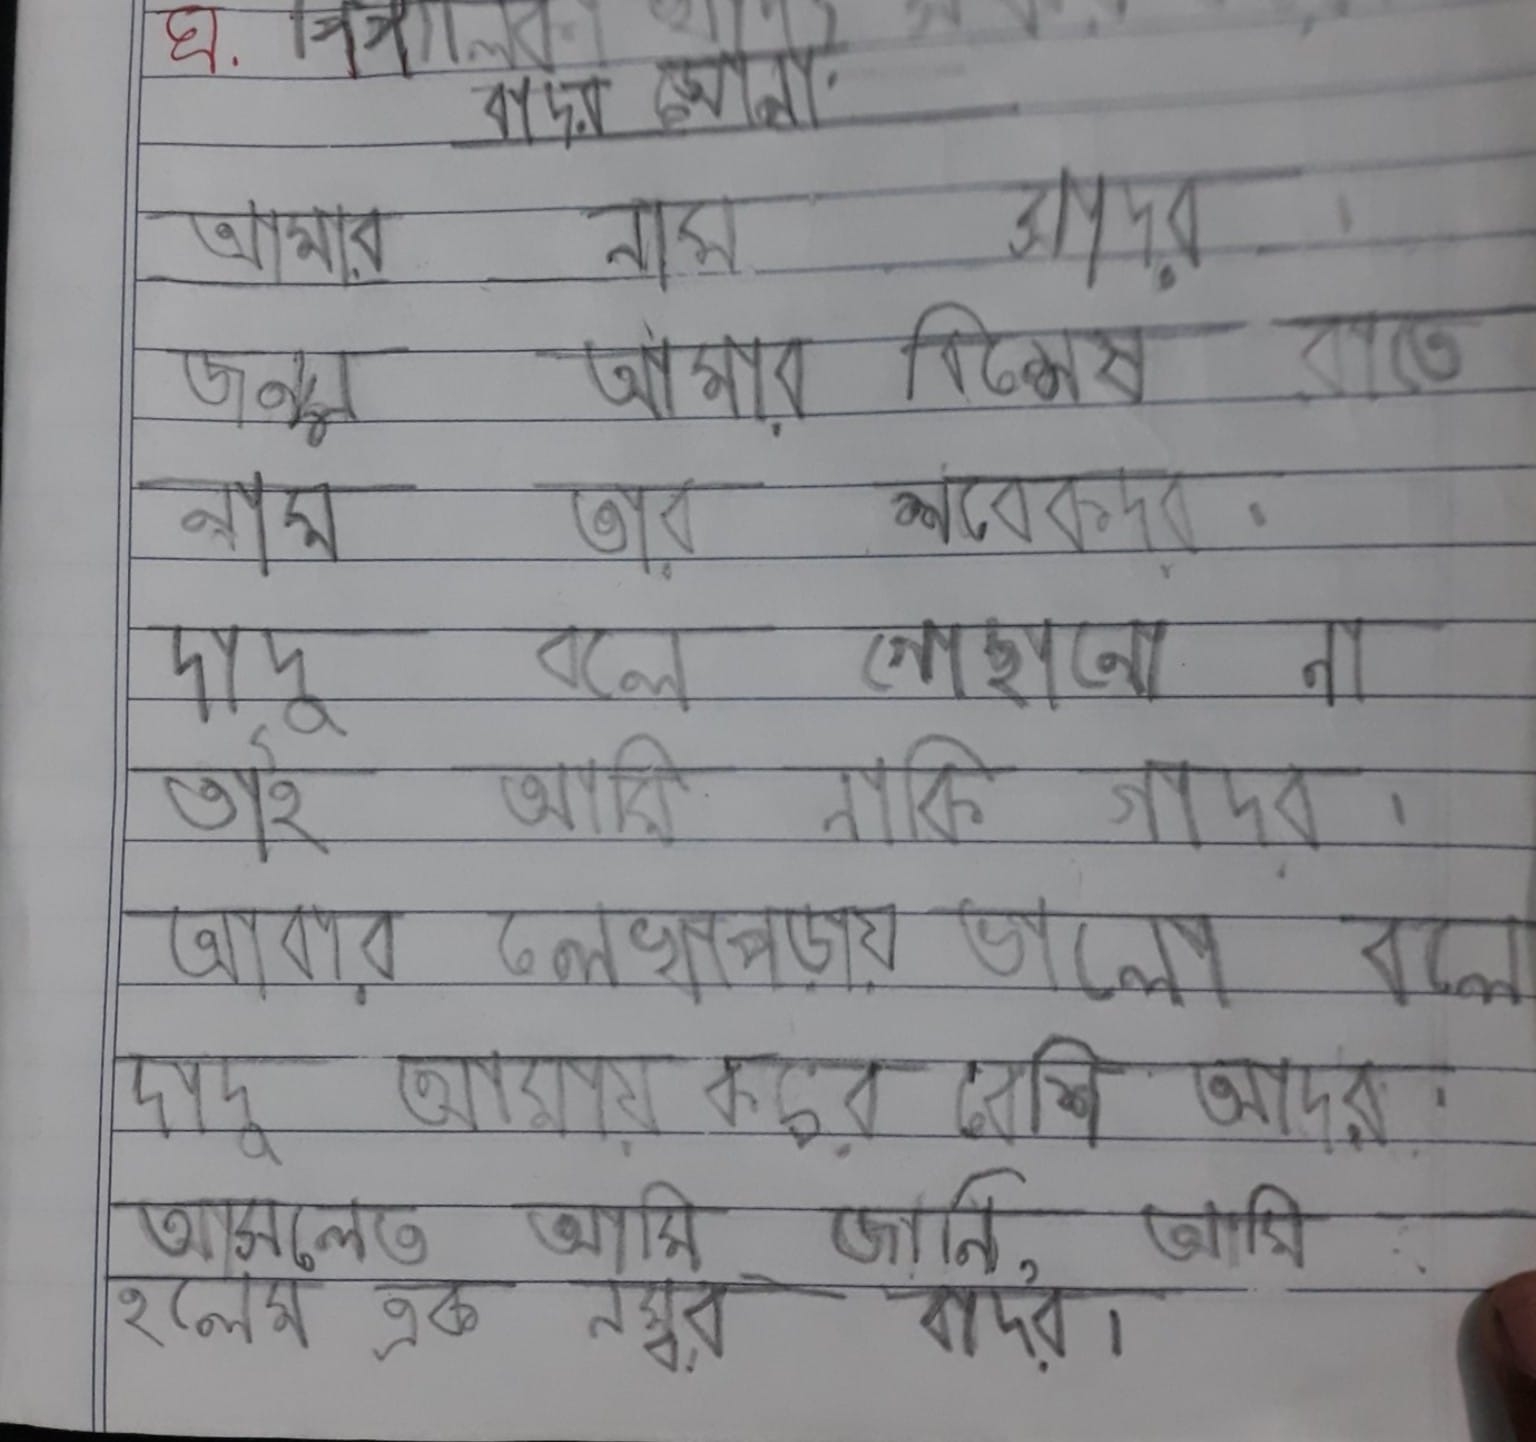 ঘ.
বাদর সোনা
আমার নাম সাদর ।
জন্ম আমার বিশেষ রাতে
নাম তার শবেকদর ।
দাদু বলে গোছানো না
তাই আমি নাকি গাদর ।
আবার লেখাপড়ায় ভালো বলে
দাদু আমায় করে বেশি আদর ।
আসলেত আমি জানি, আমি
হলেম এক নম্বর বাদর ।